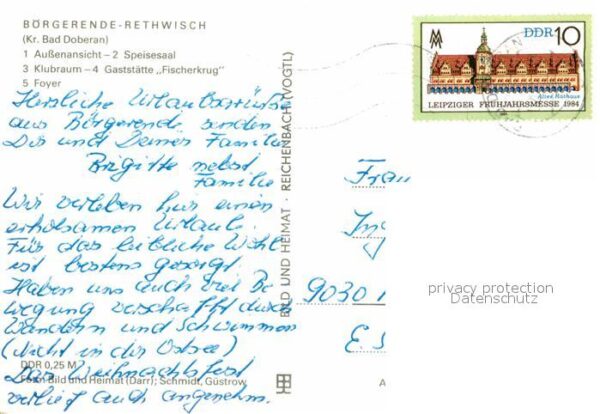 BÖRGERENDE-RETHWISCH
(Kr. Bad Doberan)
1 Außenansicht – 2 Speisesaal
3 Klubraum – 4 Gaststätte „Fischerkrug"
5 Foyer
Herzliche Urlaubsgrüße
aus Börgerende senden
Dir und Deiner Familie
Brigitte nebst
Familie
Wir verleben hier einen
erholsamen Urlaub.
Für das leibliche Wohl
ist bestens gesorgt.
Haben uns auch viel Be
wegung verschafft durch
Wandern und Schwimmen
(Nicht in der Ostsee)
DDR 0,25 M
Das Weihnachtsfest
Foto: Bild und Heimat (Darr); Schmidt, Güstrow
verlief auch angenehm.
BILD UND HEIMAT · REICHENBACH (VOGTL)
DDR 10
Altes Rathaus
LEIPZIGER FRÜHJAHRSMESSE 1984
Frau
9030
E. S
A
privacy protection
Datenschutz